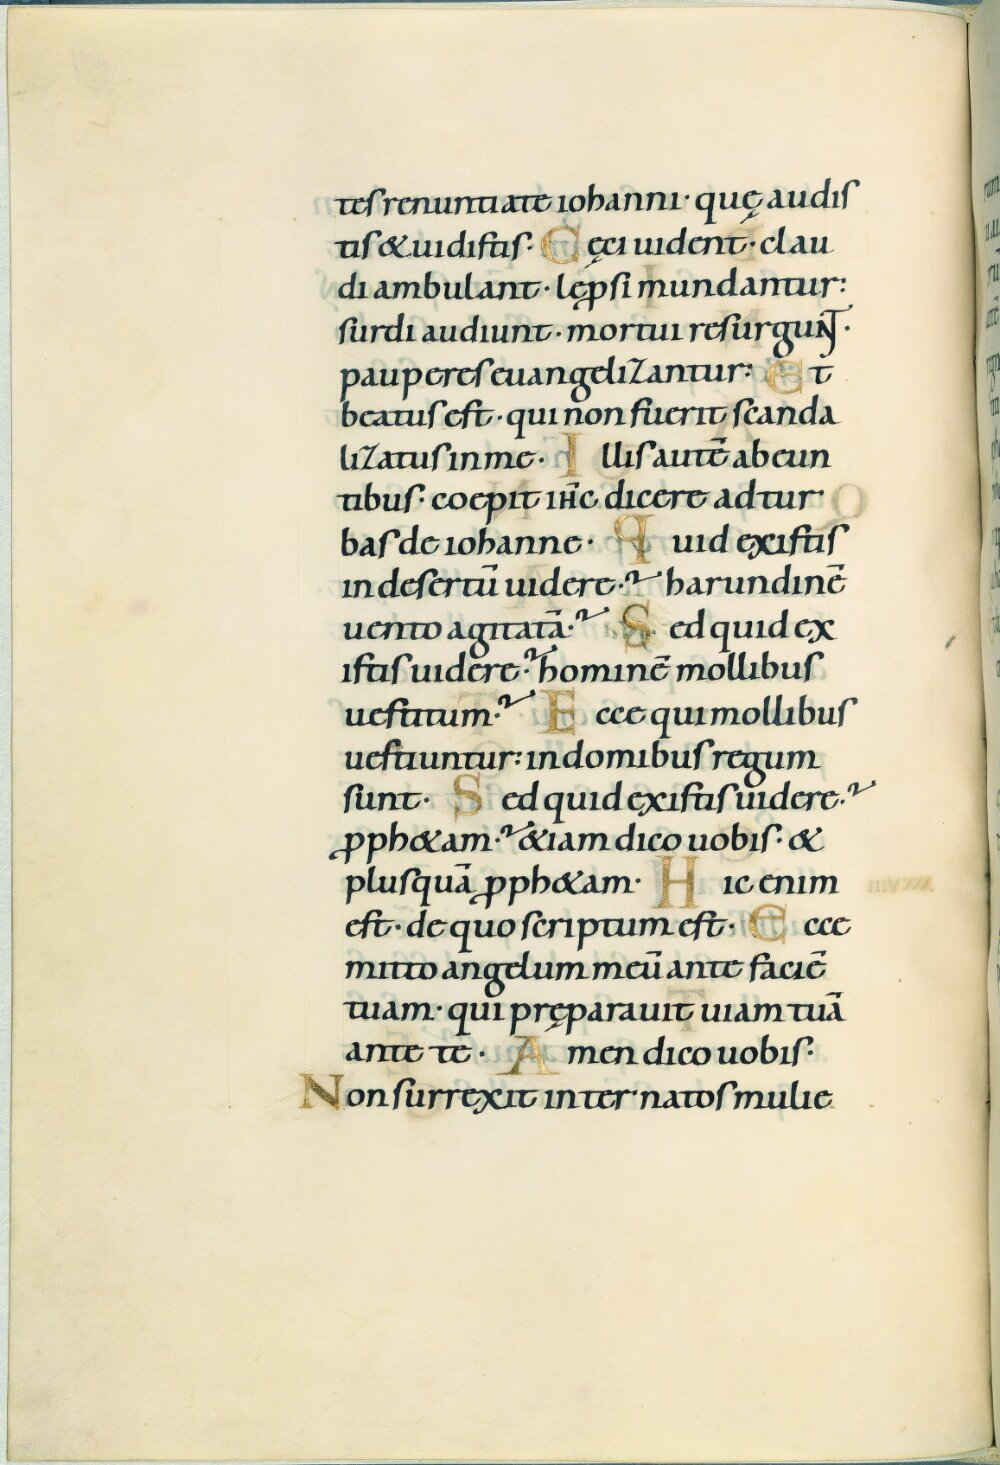 tes renuntiate iohanni· quę audis
tis & uidistis· Cęci uident· clau
di ambulant· lep̱si mundantur:
surdi audiunt· mortui resurgunt·
pauperes euangelizantur: Et
beatus est· qui non fuerit scanda
lizatus in me· Illis autē abeun
tibus· coepit ih̄c dicere ad tur
bas de iohanne· Quid existis
in desertū uidere·? harundinē
uento agitatā·? Sed quid ex
istis uidere·? hominē mollibus
uestitum·? Ecce qui mollibus
uestiuntur: in domibus regum
sunt· Sed quid existis uidere·?
ꝓph&am·? &iam dico uobis· &
plusquā ꝓph&am· Hic enim
est· de quo scriptum est· Ecce
mitto angelum meū ante faciē
tuam· qui pręparauit uiam tuā
ante te· Amen dico uobis·
Non surrexit inter natos mulie